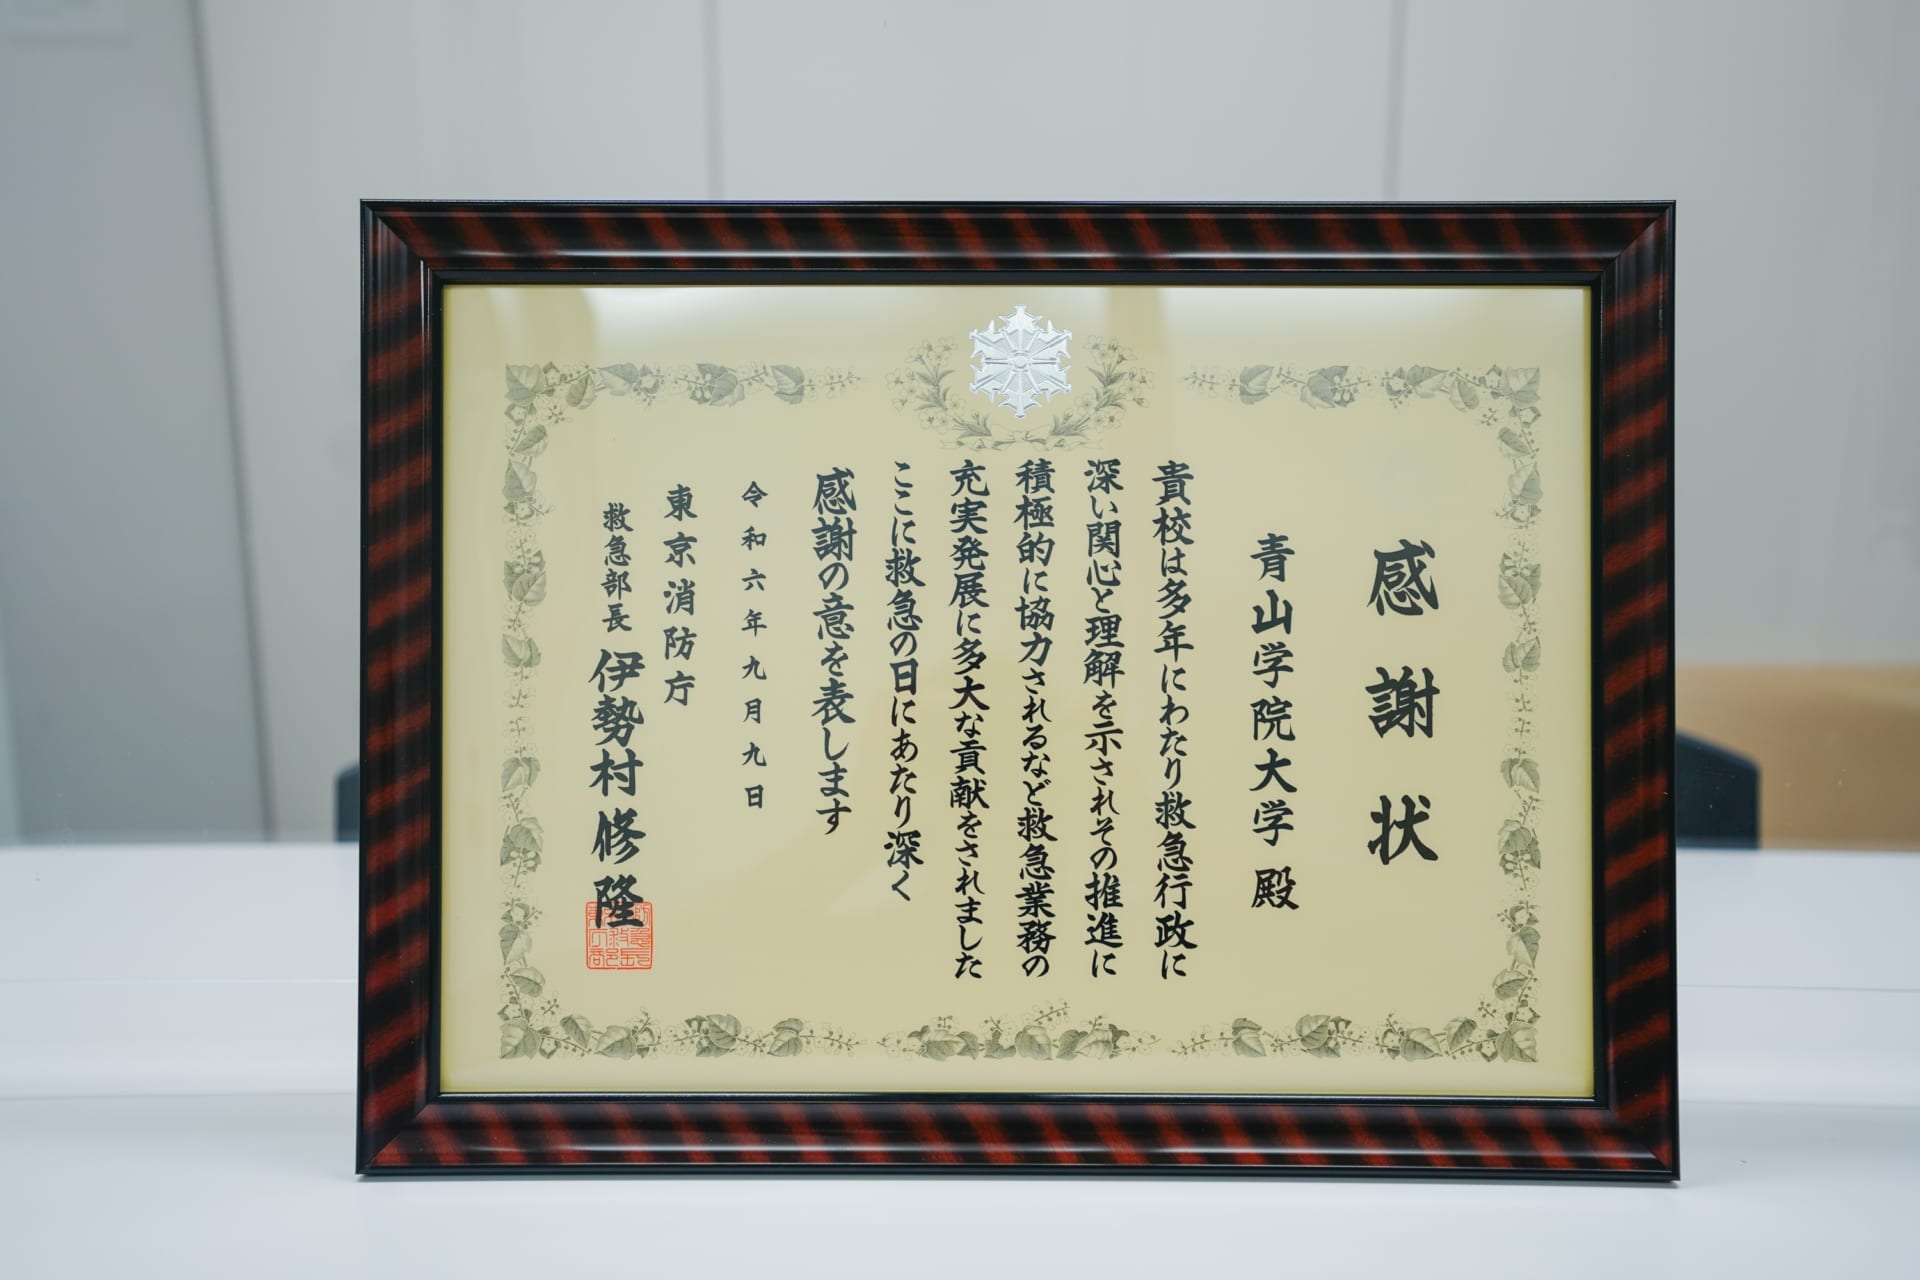 感謝状
青山学院大学 殿
貴校は多年にわたり救急行政に
深い関心と理解を示されその推進に
積極的に協力されるなど救急業務の
充実発展に多大な貢献をされました
ここに救急の日にあたり深く
感謝の意を表します
令和六年九月九日
東京消防庁
救急部長 伊勢村修隆